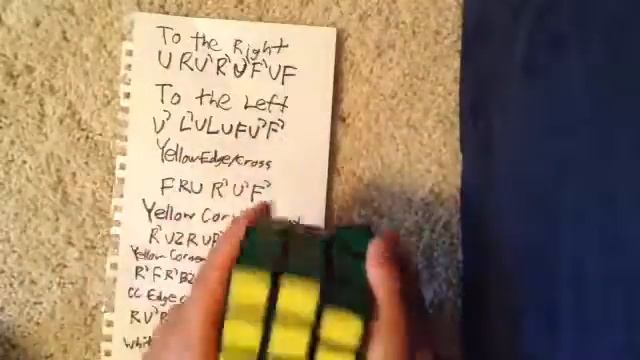 To the Right
U R U' R' U' F' U F
To the Left
U' L' U L U F U' F'
Yellow Edge/Cross
F R U R' U' F'
Yellow
R' U2 R U R'
Yellow
R' F R' B2
CC Edge
R U'